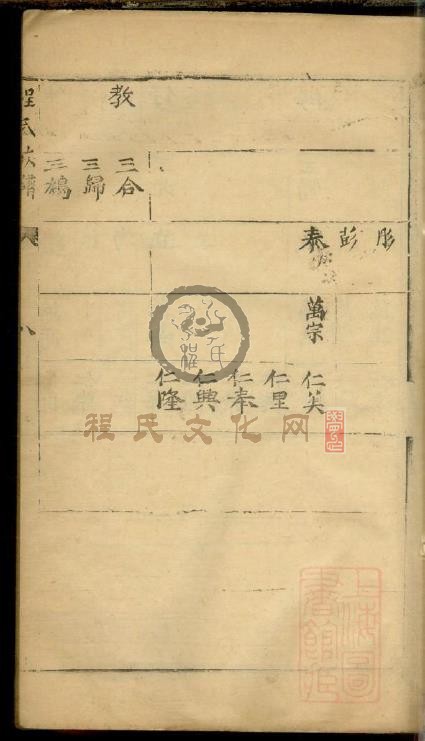 彤
彭
泰
萬宗
仁美
仁里
仁奉
仁興
仁隆
教
三合
三歸
三鵷
程氏族譜
八
程氏文化网
上海圖書館藏